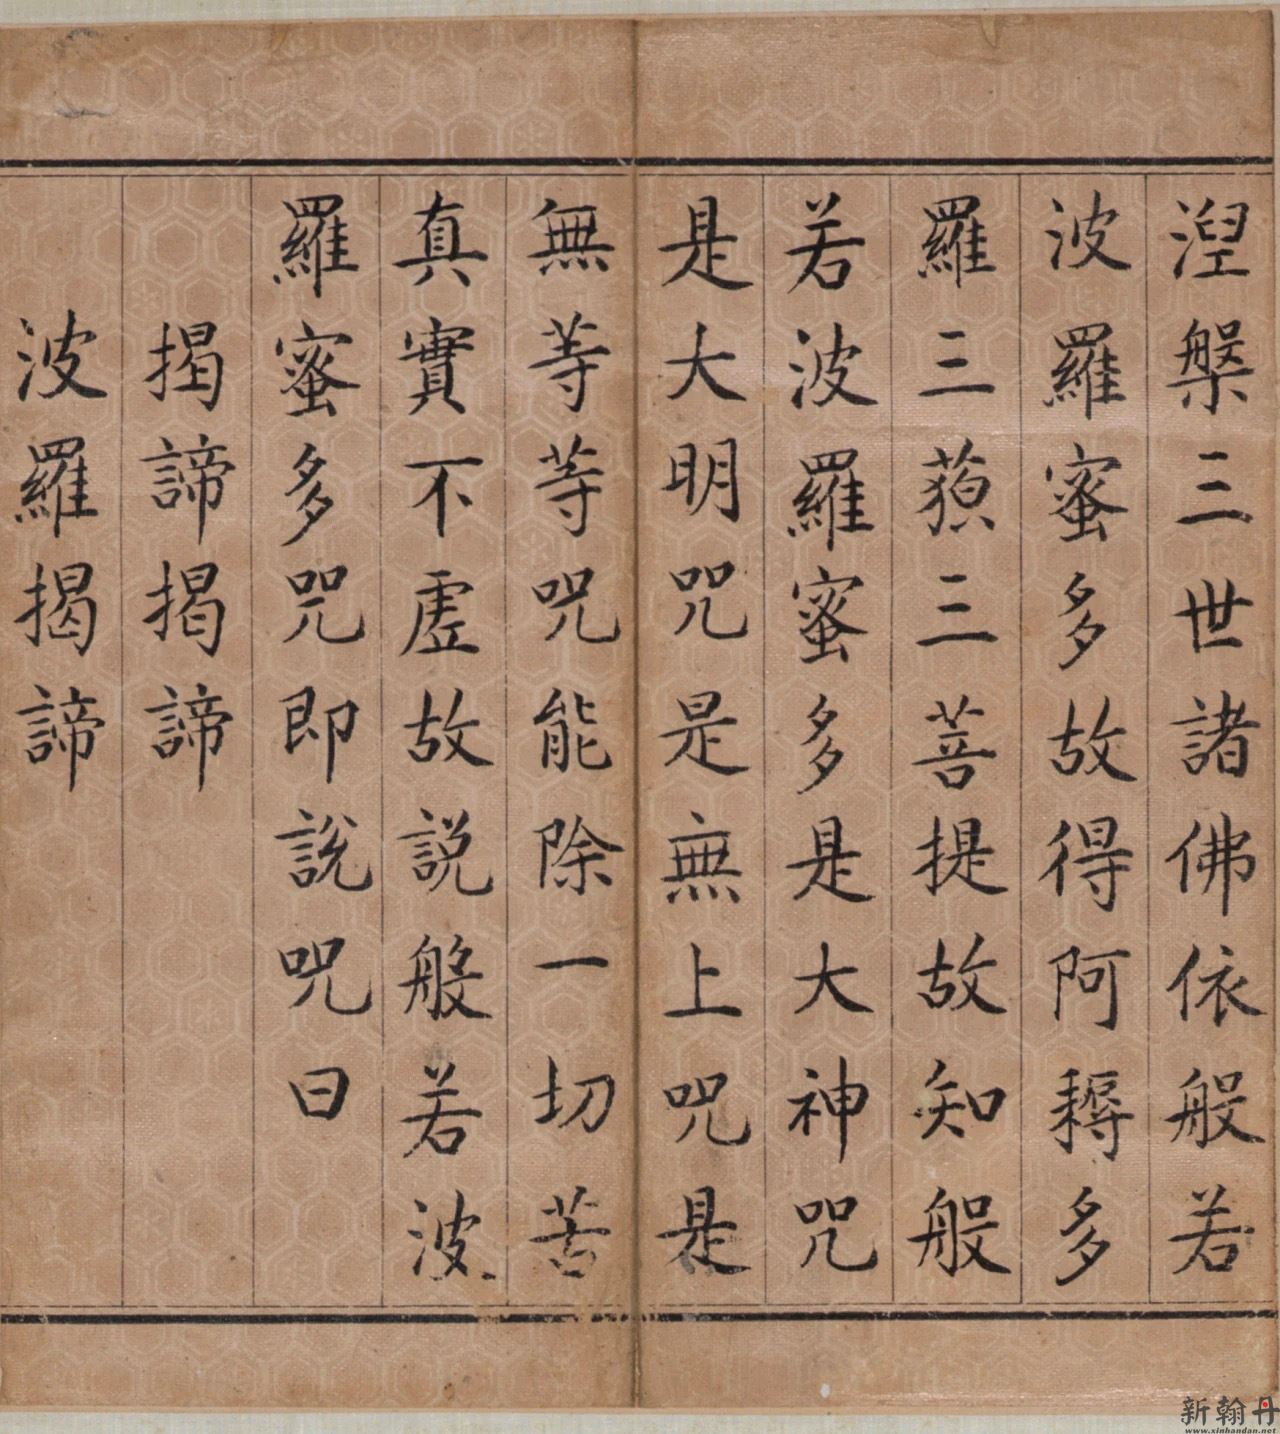 涅槃三世諸佛依般若
波羅蜜多故得阿耨多
羅三藐三菩提故知般
若波羅蜜多是大神咒
是大明咒是無上咒是
無等等咒能除一切苦
真實不虛故説般若波
羅蜜多咒即說咒曰
揭諦揭諦
波羅揭諦
新翰丹
www.xinhandan.net